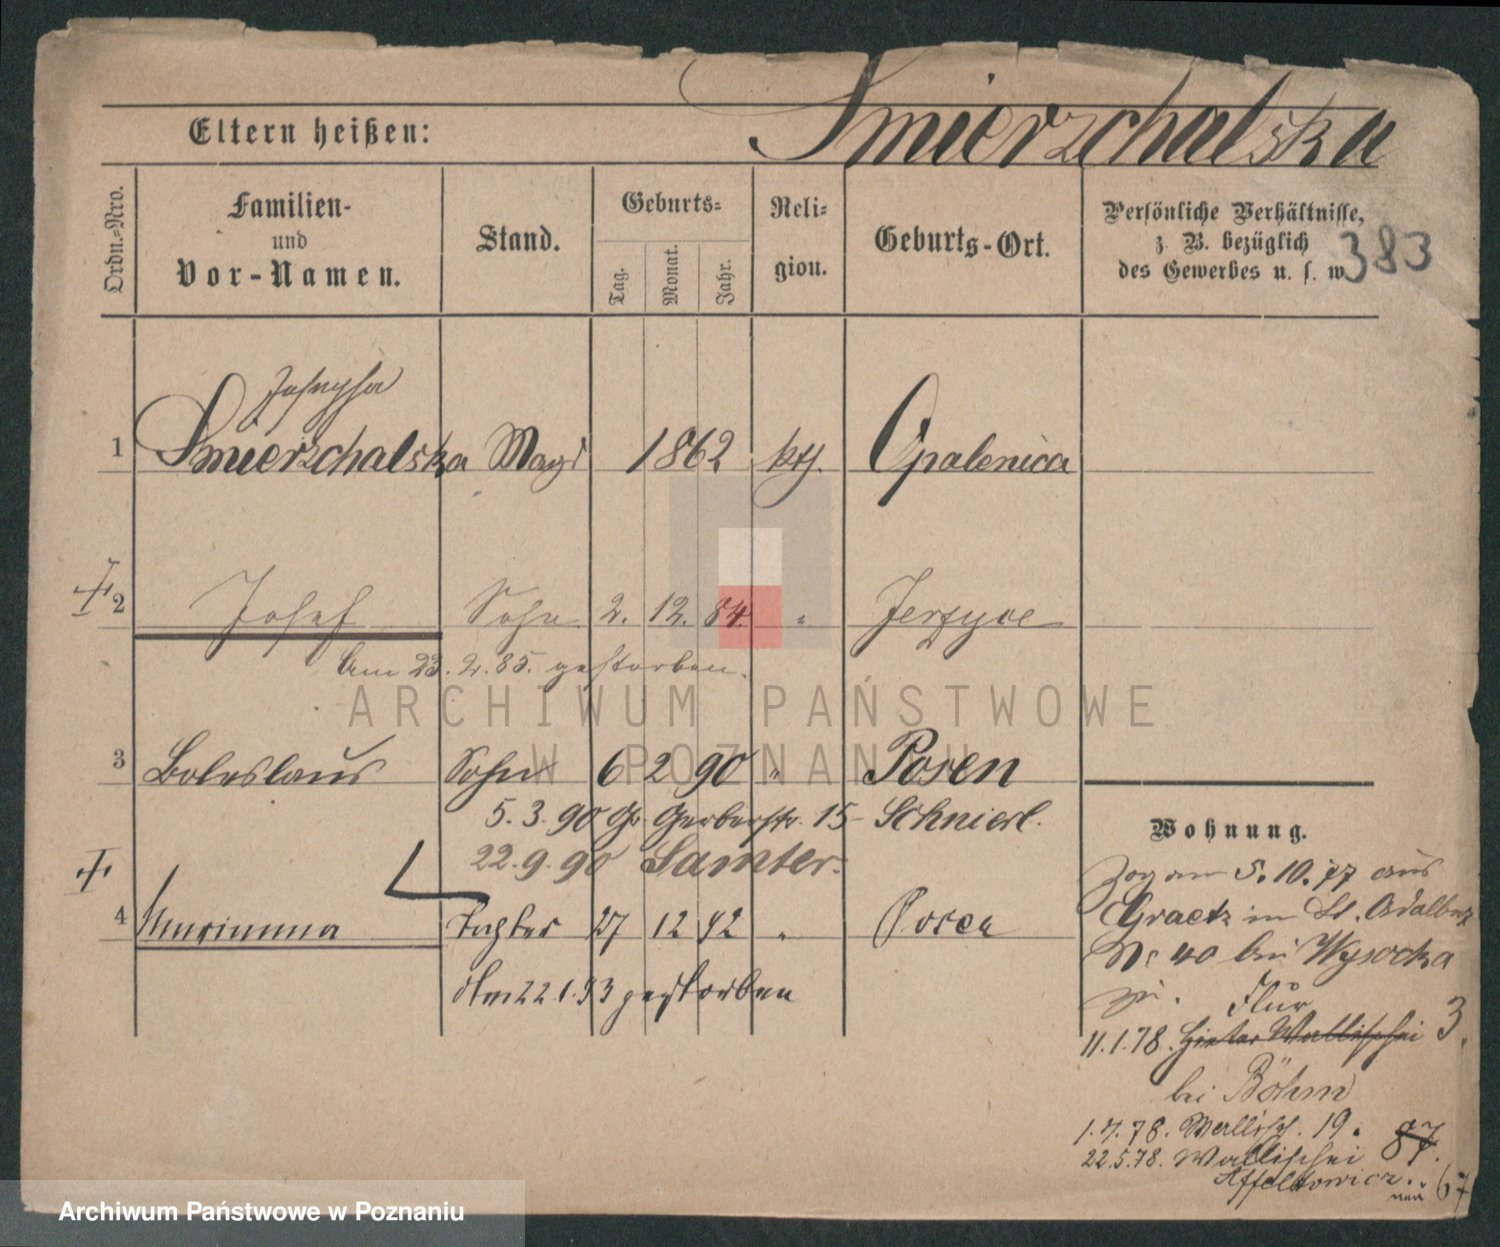 Eltern heißen:
Smierzchalska
Ordn.=Nro.
Familien-
und
Vor-Namen.
Stand.
Geburts=
Tag.
Monat.
Jahr.
Reli=
gion.
Geburts-Ort.
Persönliche Verhältnisse,
z. B. bezüglich
des Gewerbes u. s. w.
383
Josepha
1 Smierzchalska Magd 1862 kth. Opalenica
2 Josef Sohn 2. 12. 84. " Jerzyce
Am 23. 2. 85. gestorben.
3 Boleslaus Sohn 6 2 90 " Posen
5. 3. 90 Gr. Gerberstr. 15 Schnierl.
22. 9. 90 Samter.
4 Marianna Tochter 27 12 92 " Posen
Am 22. 1. 93 gestorben
Wohnung.
Zog am 5. 10. 77 aus
Graetz in St. Adalbert
No 40 bei Wysocka
zu.
Flur
11. 1. 78. Hinter Wallischei 3.
bei Böhm
1. 4. 78. Wallisch. 19.
22. 5. 78. Wallischei 87.
neu 67
ARCHIWUM PAŃSTWOWE
W POZNANIU
Archiwum Państwowe w Poznaniu